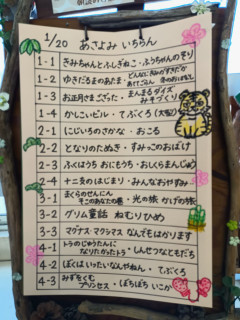 1/20 あさよみ いちらん
1-1 きしゃちゃんとふしぎねこ・ふうちゃんのそり
1-2 ゆきだるまのあたま・どんなにきみがすきだかあててごらん 冬のおはなし
1-3 お正月さまござった・まんまるダイズみそづくり
1-4 かしこいビル・てぶくろ(大型)
2-1 にじいろのさかな・おこる
2-2 となりのたぬき・すみっこのおばけ
2-3 ふくはうち おにもうち・おしくらまんじゅう
2-4 十二支のはじまり・みんなおやすみ
3-1 まくらのせんにん そこのあなたの巻・光の旅 かげの旅
3-2 グリム童話 ねむりひめ
3-3 マグナス・マクシマス なんでもはかります
4-1 トラのじゅうたんになりたかったトラ・しんせつなともだち
4-2 ぼくはいったいなんやねん・てぶくろ
4-3 みずをくむプリンセス・ぽちぽちいこか